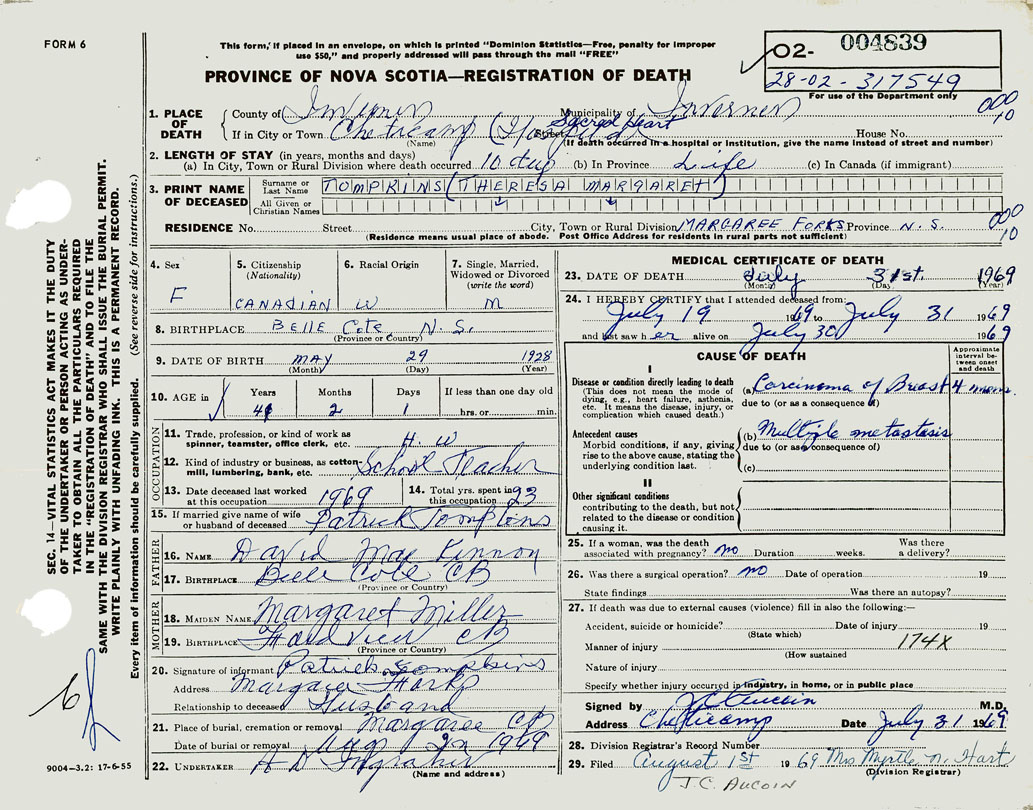 FORM 6
This form, if placed in an envelope, on which is printed "Dominion Statistics—Free, penalty for improper
use $50," and properly addressed will pass through the mail "FREE"
PROVINCE OF NOVA SCOTIA—REGISTRATION OF DEATH
O2- 004839
28-02-317549
For use of the Department only
000
10
1. PLACE OF DEATH
County of Inverness Municipality of Inverness
If in City or Town Cheticamp Sacred Heart Street House No.
(Name) (If death occurred in a hospital or institution, give the name instead of street and number)
2. LENGTH OF STAY (in years, months and days)
(a) In City, Town or Rural Division where death occurred 10 days (b) In Province Life (c) In Canada (if immigrant)
3. PRINT NAME OF DECEASED
Surname or Last Name TOMPKINS (THERESA MARGARET)
All Given or Christian Names
RESIDENCE No. Street City, Town or Rural Division MARGAREE FORKS Province N.S.
(Residence means usual place of abode. Post Office Address for residents in rural parts not sufficient)
000
10
4. Sex
F
5. Citizenship
(Nationality)
CANADIAN
6. Racial Origin
W
7. Single, Married,
Widowed or Divorced
(write the word)
M
8. BIRTHPLACE BELLE Cote, N.S.
(Province or Country)
9. DATE OF BIRTH MAY 29 1928
(Month) (Day) (Year)
10. AGE in
Years Months Days If less than one day old
41 2 1 hrs. or min.
OCCUPATION
11. Trade, profession, or kind of work as
spinner, teamster, office clerk, etc. H.W
12. Kind of industry or business, as cotton-
mill, lumbering, bank, etc. School Teacher
13. Date deceased last worked
at this occupation 1969
14. Total yrs. spent in
this occupation 23
15. If married give name of wife
or husband of deceased Patrick Tompkins
FATHER
16. NAME David MacKinnon
17. BIRTHPLACE Belle Cote CB
(Province or Country)
MOTHER
18. MAIDEN NAME Margaret Miller
19. BIRTHPLACE CB
(Province or Country)
20. Signature of informant Patrick Tompkins
Address Margaree Forks
Relationship to deceased Husband
21. Place of burial, cremation or removal Margaree CB
Date of burial or removal Aug 2n 1969
22. UNDERTAKER
(Name and address)
MEDICAL CERTIFICATE OF DEATH
23. DATE OF DEATH July 31st 1969
(Month) (Day) (Year)
24. I HEREBY CERTIFY that I attended deceased from:
July 19 1969 to July 31 1969
and last saw her alive on July 30 1969
CAUSE OF DEATH
Approximate
interval be-
tween onset
and death
I
Disease or condition directly leading to death
(This does not mean the mode of
dying, e.g., heart failure, asthenia,
etc. It means the disease, injury, or
complication which caused death.)
(a) Carcinoma of Breast 4 mons.
due to (or as a consequence of)
Antecedent causes
Morbid conditions, if any, giving
rise to the above cause, stating the
underlying condition last.
(b) Multiple metastasis
due to (or as a consequence of)
(c)
II
Other significant conditions
contributing to the death, but not
related to the disease or condition
causing it.
25. If a woman, was the death
associated with pregnancy? no Duration weeks. Was there
a delivery?
26. Was there a surgical operation? no Date of operation 19
State findings Was there an autopsy?
27. If death was due to external causes (violence) fill in also the following:—
Accident, suicide or homicide? Date of injury 19
(State which)
Manner of injury 174X
(How sustained
Nature of injury
Specify whether injury occurred in industry, in home, or in public place
Signed by J C Aucoin M.D.
Address Cheticamp Date July 31 1969
28. Division Registrar's Record Number
29. Filed August 1st 1969 Mrs Myrtle N. Hart
(Division Registrar)
J.C. AUCOIN
SEC. 14—VITAL STATISTICS ACT MAKES IT THE DUTY
OF THE UNDERTAKER OR PERSON ACTING AS UNDER-
TAKER TO OBTAIN ALL THE PARTICULARS REQUIRED
IN THE "REGISTRATION OF DEATH" AND TO FILE THE
SAME WITH THE DIVISION REGISTRAR WHO SHALL ISSUE THE BURIAL PERMIT.
WRITE PLAINLY WITH UNFADING INK. THIS IS A PERMANENT RECORD.
Every item of information should be carefully supplied. (See reverse side for instructions.)
9004-3.2: 17-6-55